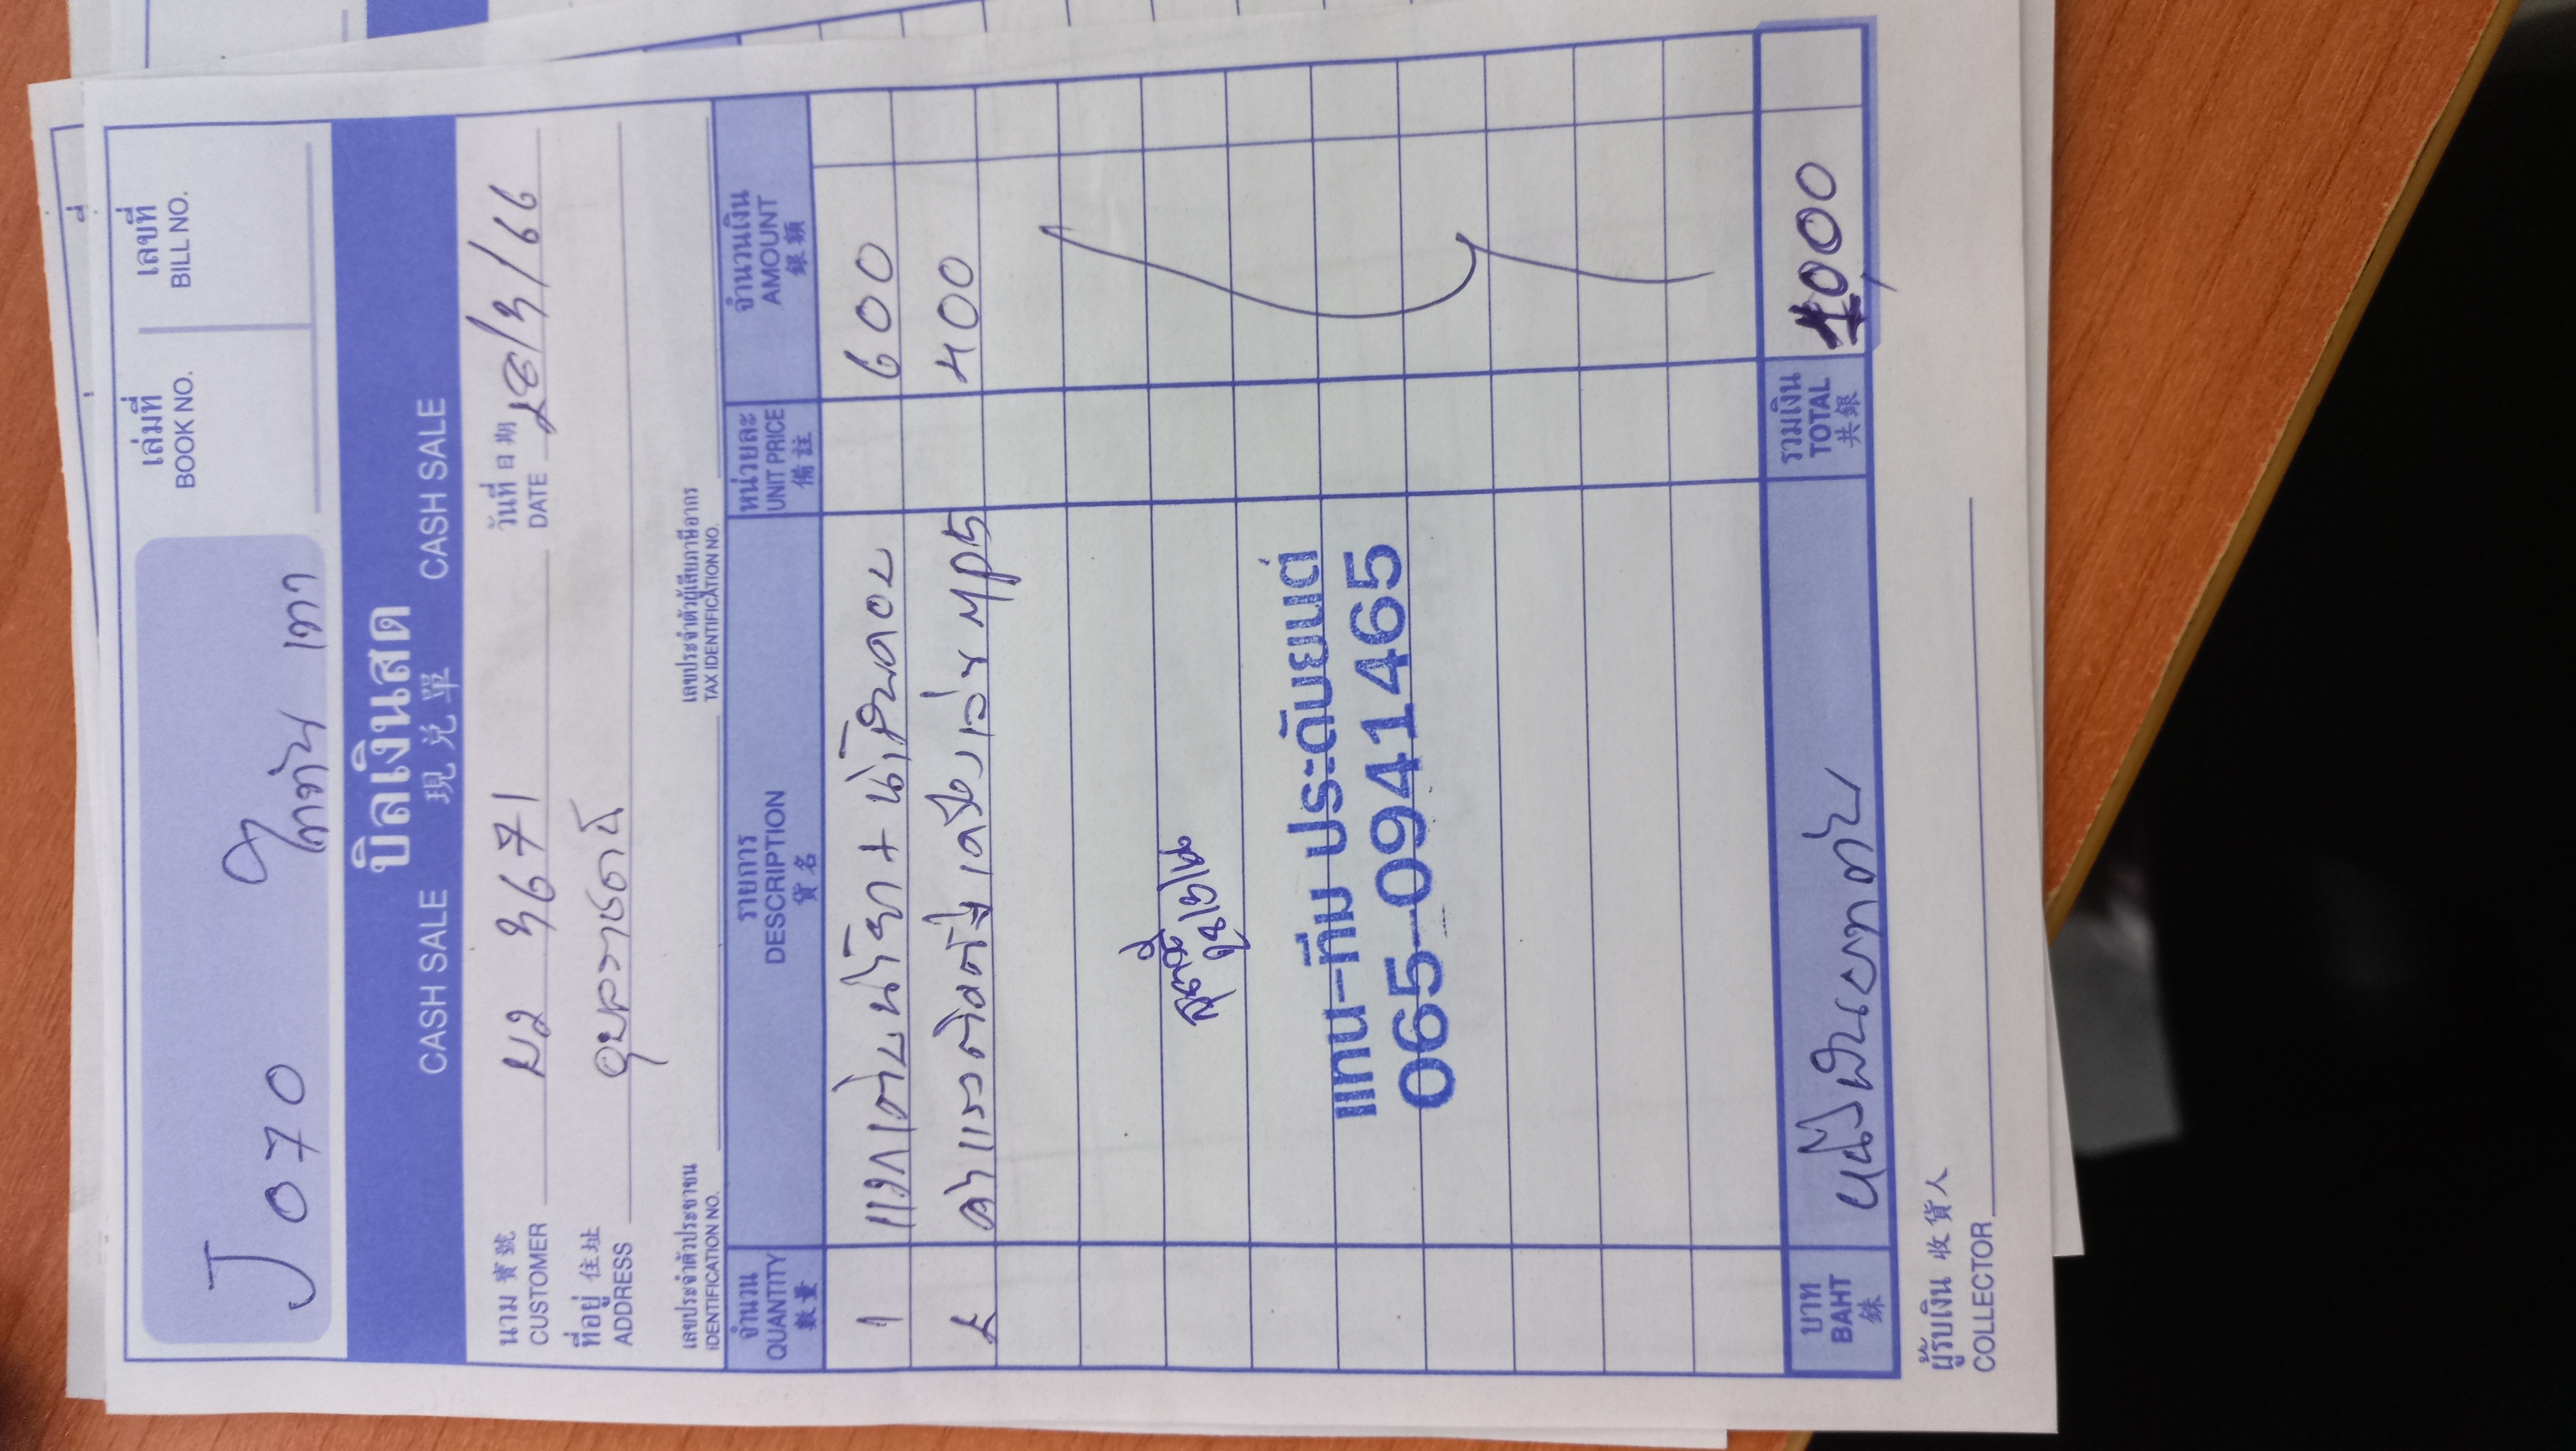 J 070
ไททัน เทา
เล่มที่
BOOK NO.
เลขที่
BILL NO.
บิลเงินสด
CASH SALE 現兌單 CASH SALE
นาม 寶號
CUSTOMER
ผว 3671
วันที่ 日期
DATE
28/3/66
ที่อยู่ 住址
ADDRESS
อุบลราชธานี
เลขประจำตัวประชาชน
IDENTIFICATION NO.
เลขประจำตัวผู้เสียภาษีอากร
TAX IDENTIFICATION NO.
จำนวน
QUANTITY
數量
รายการ
DESCRIPTION
貨名
หน่วยละ
UNIT PRICE
備註
จำนวนเงิน
AMOUNT
銀額
1
600
2 ค่าแรงติดตั้งเครื่องเล่น MP5 400
แทน-ทีม ประดับยนต์
065-0941465
บาท
BAHT
銖
หนึ่งพันบาทถ้วน
รวมเงิน
TOTAL
共銀
1000
ผู้รับเงิน 收貨人
COLLECTOR